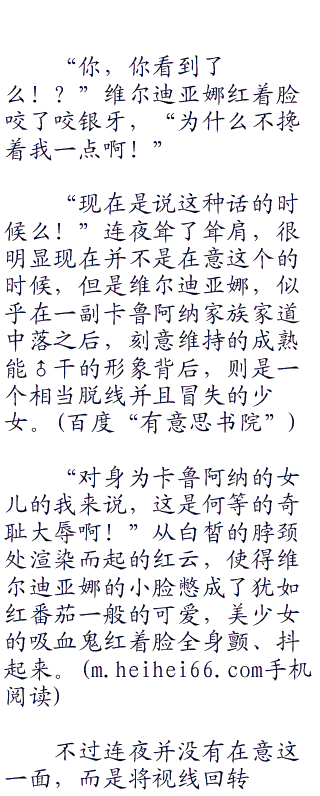 “你，你看到了
么！？”维尔迪亚娜红着脸
咬了咬银牙，“为什么不搀
着我一点啊！”
“现在是说这种话的时
候么！”连夜耸了耸肩，很
明显现在并不是在意这个的
时候，但是维尔迪亚娜，似
乎在一副卡鲁阿纳家族家道
中落之后，刻意维持的成熟
能♁干的形象背后，则是一
个相当脱线并且冒失的少
女。(百度“有意思书院”)
“对身为卡鲁阿纳的女
儿的我来说，这是何等的奇
耻大辱啊！”从白皙的脖颈
处渲染而起的红云，使得维
尔迪亚娜的小脸憋成了犹如
红番茄一般的可爱，美少女
的吸血鬼红着脸全身颤、抖
起来。(m.heihei66.com手机
阅读)
不过连夜并没有在意这
一面，而是将视线回转